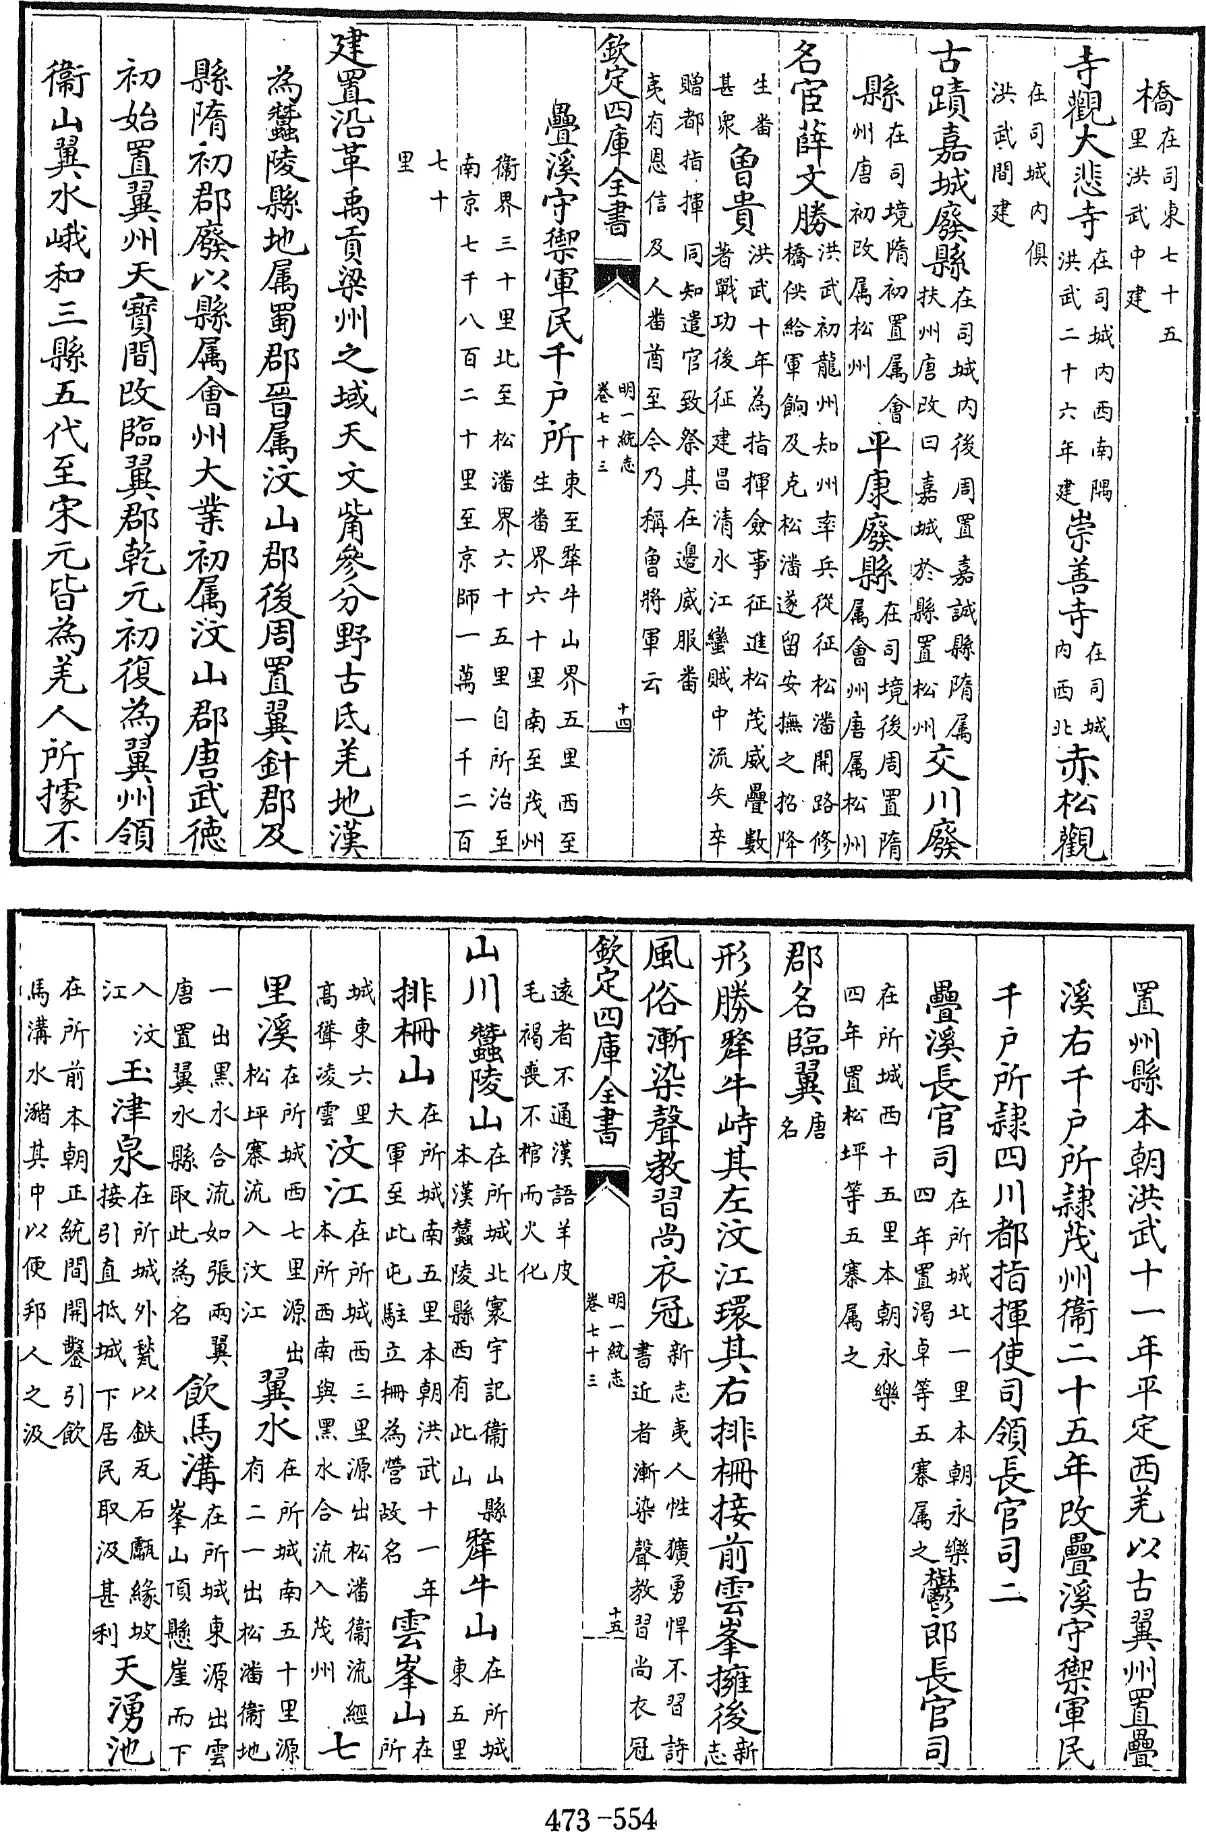 橋在司東七十五里洪武中建
寺觀大悲寺在司城内西南隅洪武二十六年建崇善寺在司城内西北赤松觀
在司城内俱洪武間建
古蹟嘉城廢縣在司城内後周置嘉誠縣隋属扶州唐改曰嘉城於縣置松州交川廢
縣在司境隋初置属會州唐初改属松州平康廢縣在司境後周置隋属會州唐属松州
名宦薛文勝洪武初龍州知州率兵從征松潘開路修橋供給軍餉及克松潘遂留安撫之招降
生番甚衆魯貴洪武十年為指揮僉事征進松茂威疊數著戰功後征建昌清水江蠻賊中流矢卒
贈都指揮同知遣官致祭其在邊威服番夷有恩信及人番酋至今乃稱魯將軍云
欽定四庫全書 明一統志卷七十三 十四
疊溪守禦軍民千户所東至犛牛山界五里西至生番界六十里南至茂州
衛界三十里北至松潘界六十五里自所治至南京七千八百二十里至京師一萬一千二百
七十里
建置沿革禹貢梁州之域天文觜參分野古氐羌地漢
為蠶陵縣地属蜀郡晉属汶山郡後周置翼針郡及
縣隋初郡廢以縣属會州大業初属汶山郡唐武德
初始置翼州天寳間改臨翼郡乾元初復為翼州領
衛山翼水峨和三縣五代至宋元皆為羌人所據不
置州縣本朝洪武十一年平定西羌以古翼州置疊
溪右千户所隷茂州衛二十五年改疊溪守禦軍民
千户所隷四川都指揮使司領長官司二
疊溪長官司在所城北一里本朝永樂四年置渴卓等五寨属之鬱郎長官司
在所城西十五里本朝永樂四年置松坪等五寨属之
郡名臨翼唐名
形勝犛牛峙其左汶江環其右排柵接前雲峯擁後新志
風俗漸染聲教習尚衣冠新志夷人性獷勇悍不習詩書近者漸染聲教習尚衣冠
欽定四庫全書 明一統志卷七十三 十五
遠者不通漢語羊皮毛褐喪不棺而火化
山川蠶陵山在所城北寰宇記衛山縣本漢蠶陵縣西有此山犛牛山在所城東五里
排柵山在所城南五里本朝洪武十一年大軍至此屯駐立柵為營故名雲峯山在所
城東六里高聳凌雲汶江在所城西三里源出松潘衛流經本所西南與黑水合流入茂州七
里溪在所城西七里源出松坪寨流入汶江翼水在所城南五十里源有二一出松潘衛地
一出黑水合流如張兩翼唐置翼水縣取此為名飲馬溝在所城東源出雲峯山頂懸崖而下
入汶江玉津泉在所城外甃以鉄瓦石甋緣坡接引直抵城下居民取汲甚利天湧池
在所前本朝正統間開鑿引飲馬溝水瀦其中以便邦人之汲
473-554